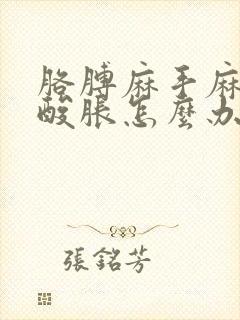 胳膊麻手麻
酸脹怎麼办
張銘芳